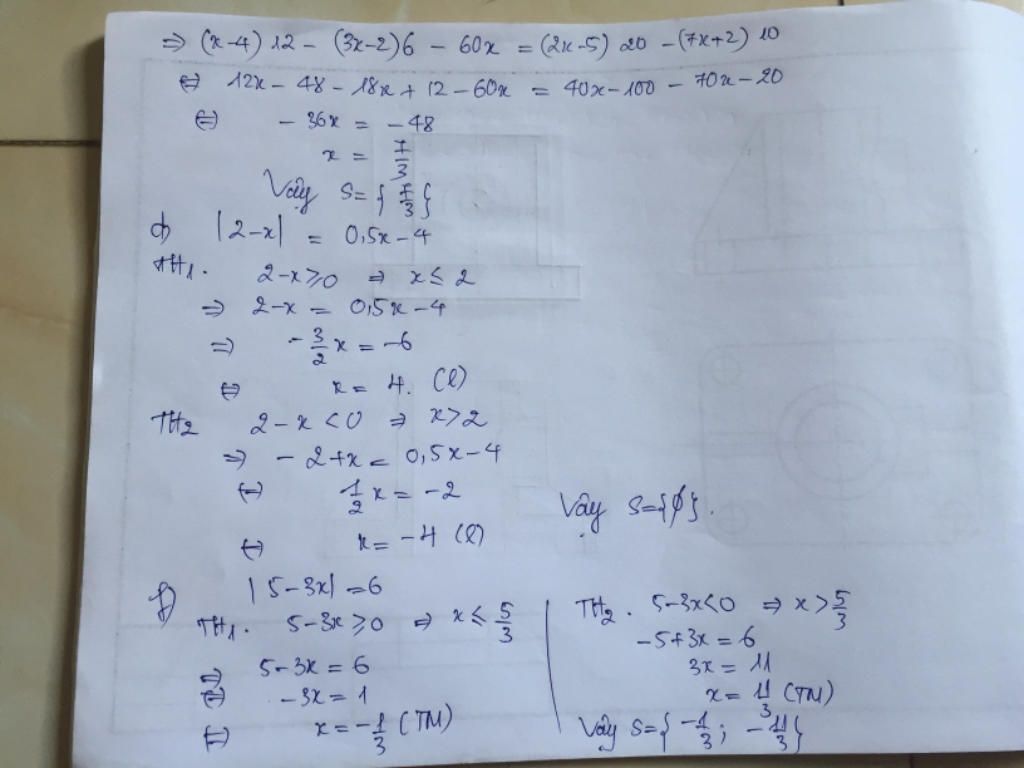 ⇒ (x-4) 12 - (3x-2)6 - 60x = (2x-5) 20 - (7x+2) 10
⇔ 12x - 48 - 18x + 12 - 60x = 40x - 100 - 70x - 20
⇔ - 36x = - 48
x = 7/3
Vậy S = { 7/3 }
d) |2-x| = 0,5x - 4
TH1. 2-x ≥ 0 ⇒ x ≤ 2
⇒ 2-x = 0,5x - 4
⇒ - 3/2 x = -6
⇔ x = 4. (l)
TH2 2 - x < 0 ⇒ x > 2
⇒ - 2 + x = 0,5x - 4
⇔ 1/2 x = -2
⇔ x = -4 (l)
Vậy S = {∅}.
f) |5-3x| = 6
TH1. 5-3x ≥ 0 ⇒ x ≤ 5/3
⇒ 5-3x = 6
⇔ -3x = 1
⇔ x = -1/3 (TM)
TH2. 5-3x < 0 ⇒ x > 5/3
-5+3x = 6
3x = 11
x = 11/3 (TM)
Vậy S = { -1/3 ; -11/3 }